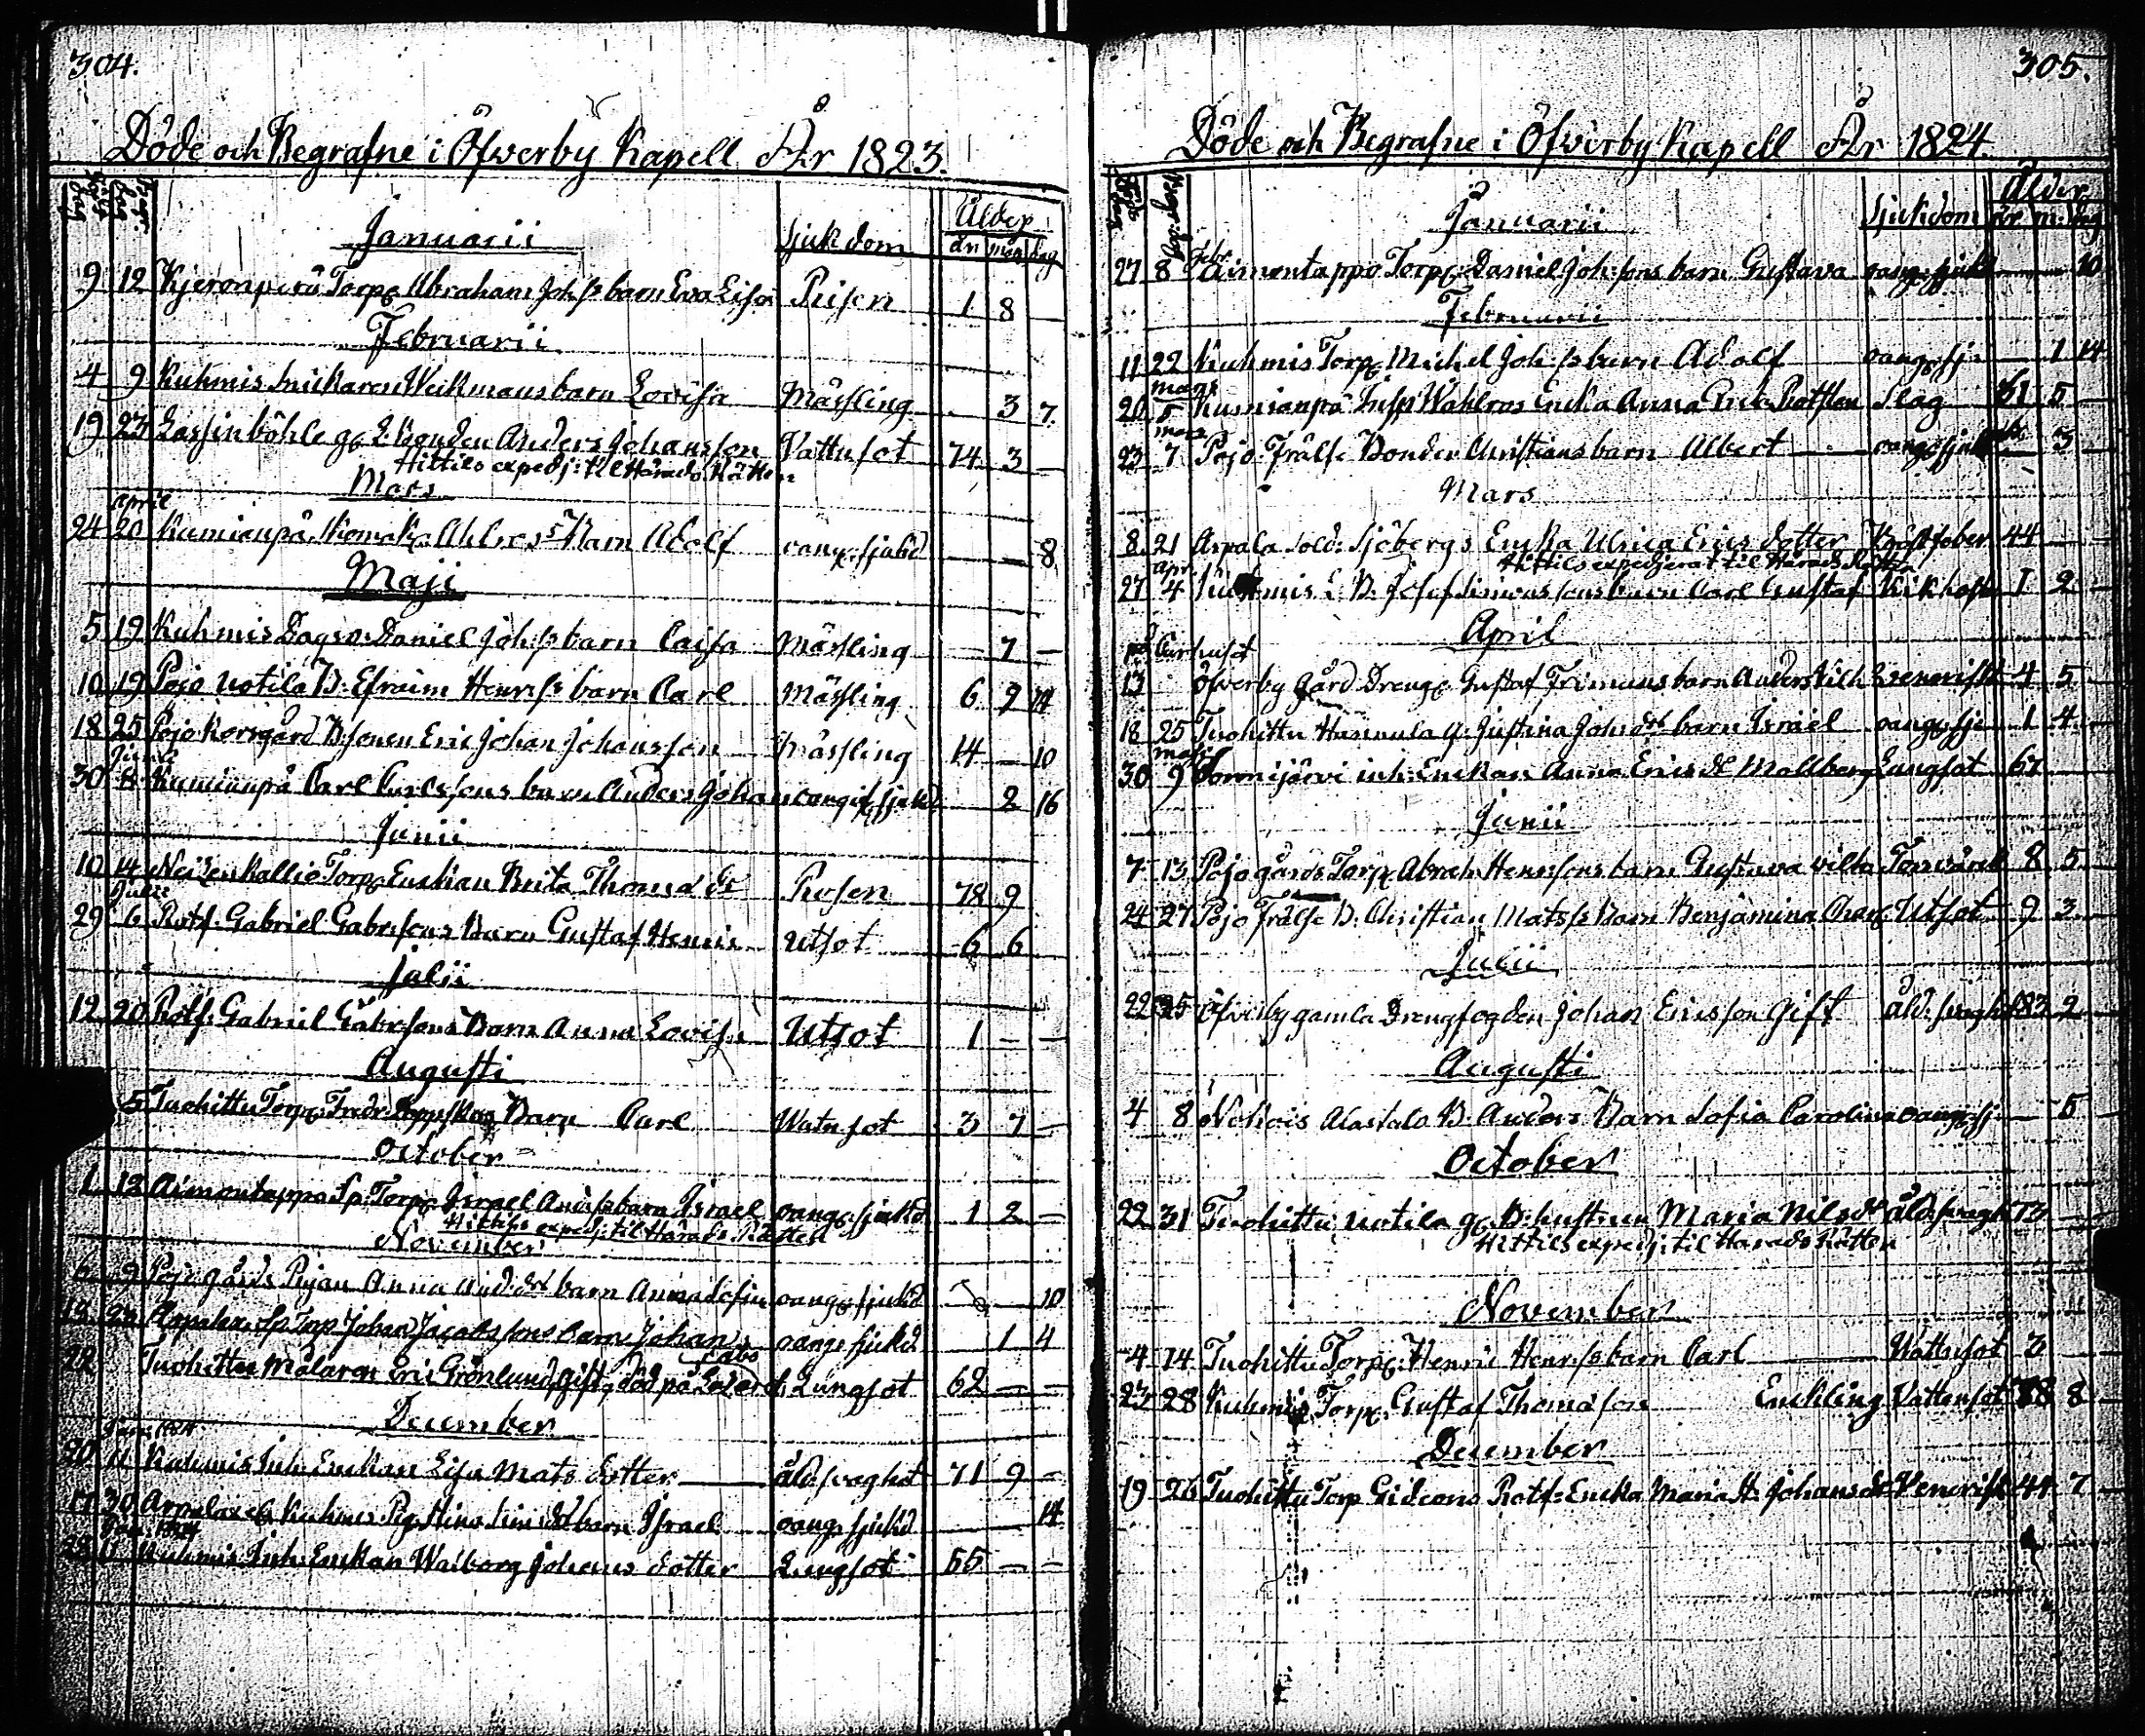 304.
Döde och Begrafne i Öfverby Kapell År 1823.
Januarii Sjukdom Ålder
år mån dag
9 12 Kjeronperä Torp: Abraham Joh:s barn Eva Lisa Risen 1 8
Februarii
4 9 Kuhmis Snickaren Weikmans barn Lovisa Mässling 3 7
19 23 Lassinböhle g: L: Bonden Anders Johansson Vattusot 74 3 —
Hittils exped: til Härads Rätten
Mars
april
24 20 Kumianpä Barn Adolf oang: sjukd — — 8
Maji
5 19 Kuhmis Dagsv: Daniel Joh:s barn Caisa Mässling — 7 —
10 19 Pojo Uotila B: Efraim Henr:s barn Carl Mässling 6 9 14
18 25 Pojo Korsgård B:sonen Eric Johan Johansson Mässling 14 — 10
Junii
30 Kumianpä Carl Carlssons barn Anders Johan oangif: sjukd 2 16
Junii
10 14 Torp: Enkan Brita Thomæ dr Rosen 78 9
Julii
29 6 Rotf: Gabriel Gabr:sons Barn Gustaf Henric Utsot 6 6
Julii
12 20 Rotf: Gabriel Gabr:sons Barn Anna Lovisa Utsot 1 — —
Augusti
5 Tuohittu Torp: Fredr: Barn Carl Watusot 3 7 —
October
1 12 Aimontappo Torp: Israel barn Israel oang: sjukd 1 2 —
Hittils exped: til Härads Rätten
November
6 9 Pojo gårds Pigan Anna And:dr barn Anna Sofia oang: sjukd — 10
Torp Johan Jacobssons barn Johan oang: sjukd 1 4
22 Tuohittu Målaren Eric Grönlund, gift, död på Lungsot 62 — —
December
Jan: 1824
20 11 Kuhmis Inh: Enkan Lisa Mats dotter åld: svaghet 71 9 —
17 30 Kuhmis Pig: Stina Sim:dr barn Israel oang: sjukd 14
Jan: 1824
28 11 Kuhmis Inh: Enkan Walborg Johans dotter Lungsot 55 — —
305.
Döde och Begrafne i Öfverby Kapell År 1824.
Januarii Sjukdom Ålder
år m: dag
Febr:
27 8 Aimontappo Torp: Daniel Joh:sons barn Gustava oang: sjukd 10
Februarii
11 22 Kuhmis Torp: Michel Joh:s barn Adolf oang: sj: — 1 14
mars
20 5 Kumianpä Insp: Wahlros Enka Anna Slag 61 5
mars
23 7 Pojo Frälse Bonden Christians barn Albert — oang: sjukd — 3
Mars
8 21 Arpala Sold: Sjöbergs Enka Ulrica Erics dotter Bröstfeber 44
Hittils expedierat til Härads Rätten
apr:
27 4 Kuhmis L: B: Josef Simonssons barn Carl Gustaf Kikhosta 1 2
April
13 Öfverby Gård Dreng: Gustaf Frimans barn Anders Wilh: Venerisk 4 5
18 25 Tuohittu Hannula P: Justina Joh:dr barn Israel oang: sj: 1 4
maji
30 9 inh: Enkan Anna Erics dr Mollberg Lungsot 67
Junii
7 13 Pojo gårds Torp: Abrah: Henr:sons barn Gustava Wilh: 8 5
24 27 Pojo Frälse B: Christian Mats:s Barn Benjamina Utsot 9 3
Julii
22 25 Öfverby gamla Drengfogden Johan Ericsson Gift åld: svaghet 83 2
Augusti
4 8 Nohois Alastalo B: Anders Barn Sofia Carolina oang: sj: — 5
October
22 31 Tuohittu Uotila g: B: hustrun Maria Nils dr åld: svaghet 73
Hittils exped: til Härads Rätten
November
4 14 Tuohittu Torp: Henric Henr:s barn Carl — Wattusot 3
23 28 Kuhmis Torp: Gustaf Thomasson Enkling Vattensot 78 8
December
19 26 Tuohittu Torp Gideons Rotf: Enka Maria H: Johans dr Venerisk 44 7